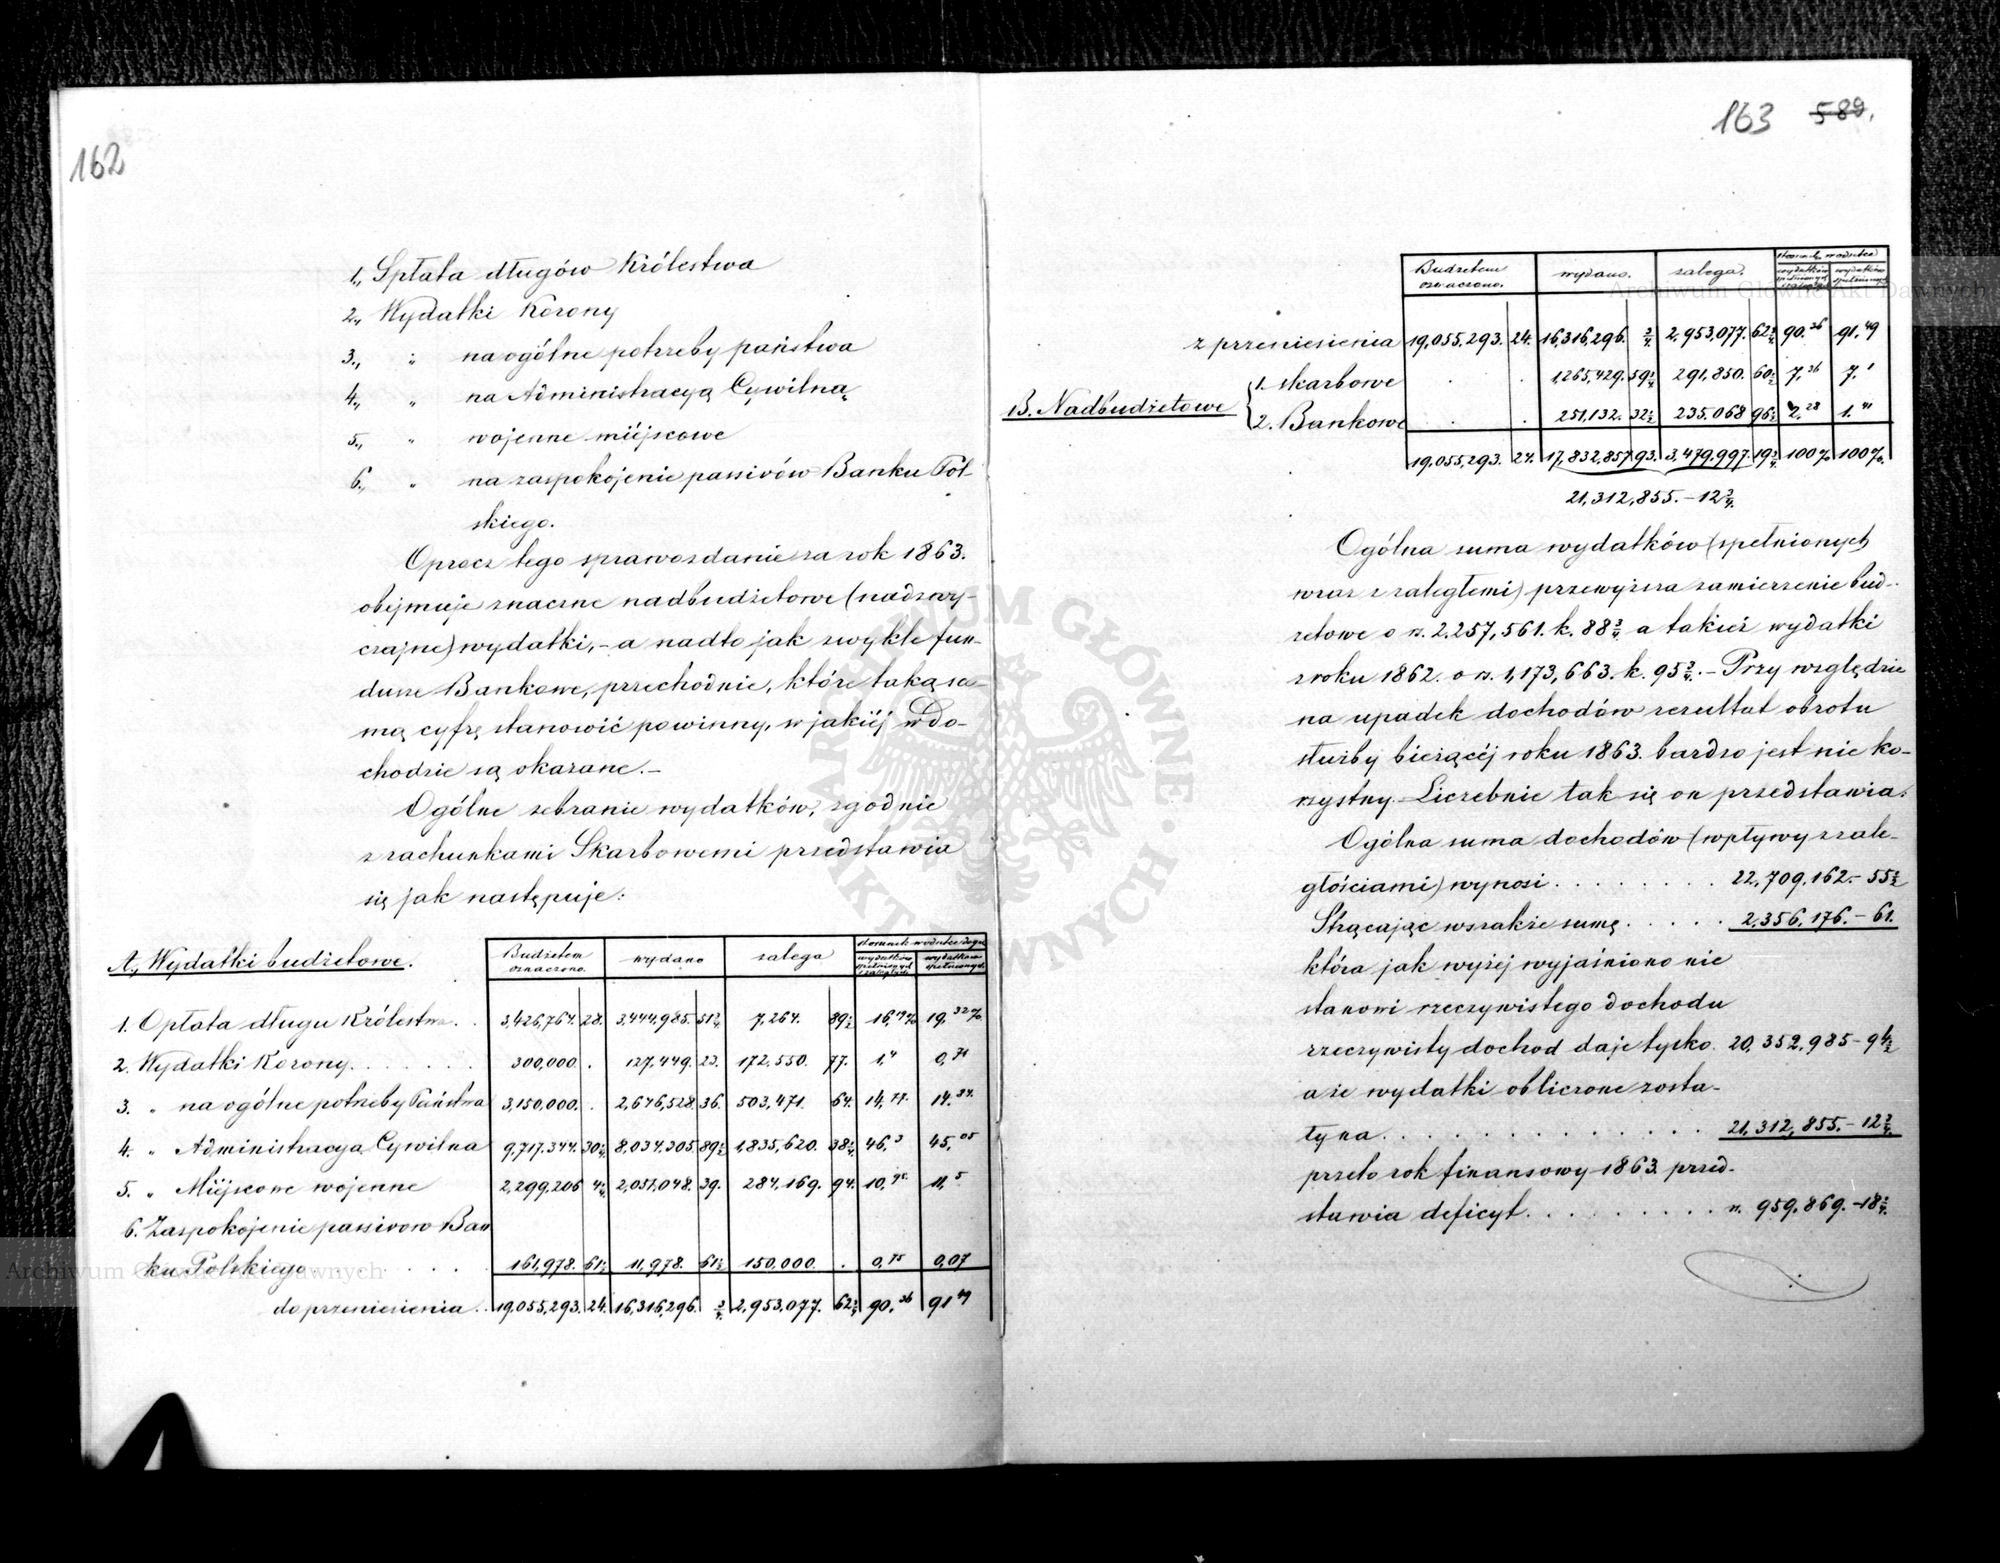 162
1., Spłata długów Królestwa
2., Wydatki Korony
3., " na ogólne potrzeby państwa
4., " na Administracyą Cywilną
5., " wojenne miéjscowe
6., " na zaspokojenie passivów Banku Pol-
skiego.
Oprócz tego sprawozdanie za rok 1863.
obejmuje znaczne nadbudżetowe (nadzwy-
czajne) wydatki, - a nadto jak zwykle fun-
dusze Bankowe, przechodnie, które taką sa-
mą cyfrę stanowić powinny, w jakiéj w Do-
chodzie są okazane. -
Ogólne zebranie wydatków, zgodnie
z rachunkami Skarbowemi przedstawia
się jak następuje:
A., Wydatki budżetowe.
Budżetem oznaczono. wydano zalega
1. Opłata długu Królestwa . . 3,426,764. 28. 3,444,985. 51¾ 7,264. 89½ 16,79% 19,32%
2. Wydatki Korony . . . . . 300,000. . 127,449. 23. 172,550. 77. 1,4 0,71
3. " na ogólne potrzeby Państwa 3,150,000. . 2,646,528. 36. 503,471. 64. 14,77. 14.84.
4. " Administracya Cywilna 9,717,344. 30¼ 8,034,305. 89½ 1,835,620. 38¼ 46,3 45,05
5. " Miéjscowe wojenne 2,299,206 4¼ 2,051,048. 39. 284,169. 94. 10,96. 11,5
6. Zaspokojenie passivow Ban
ku Polskiego . . . . . 161,978. 61½ 11,978. 61½ 150,000. . 0,75 0,07
do przeniesienia . . 19,055,293. 24. 16,316,296. ¾ 2,953,077. 62¾ 90,36 91 49
163 589.
Budżetem oznaczono. wydano. zalega.
z przeniesienia 19,055,293. 24. 16,316,296. ¾ 2,953,077. 62¾ 90.36 91,49
B. Nadbudżetowe
1. skarbowe . . 1,265,429. 59¾ 291,850. 60½ 7,36 7,1
2. Bankowe . . 251,132. 32½ 235,068 96½ 2,28 1.41
19,055,293. 24. 17,832,857. 93. 3,479,997. 19¾ 100% 100%.
21,312,855. - 12¾.
Ogólna suma wydatków (spełnionych
wraz z zaległemi) przewyższa zamierzenie bud-
żetowe o rs. 2,257,561. k. 88¾ a takież wydatki
z roku 1862. o rs. 1,173,663. k. 95¾. - Przy względzie
na upadek dochodów rezultat obrotu
służby bieżącéj roku 1863. bardzo jest nie ko-
rzystny. Liczebnie tak się on przedstawia:
Ogólna suma dochodów (wpływy z zale-
głościami) wynosi . . . . . . . . 22,709,162. - 55½
Strącając wszakże sumę . . . . . 2,356,176. - 61.
która jak wyżéj wyjaśniono nie
stanowi rzeczywistego dochodu
rzeczywisty dochod daje tylko. 20,352,985 - 94½
a że wydatki obliczone zosta-
ły na . . . . . . . . . . . . . 21,312,855. - 12¾.
przeto rok finansowy 1863. przed-
stawia deficyt . . . . . . . . . rs. 959,869. - 18¼.
Archiwum Główne Akt Dawnych
ARCHIWUM GŁÓWNE AKT DAWNYCH
Archiwum Główne Akt Dawnych